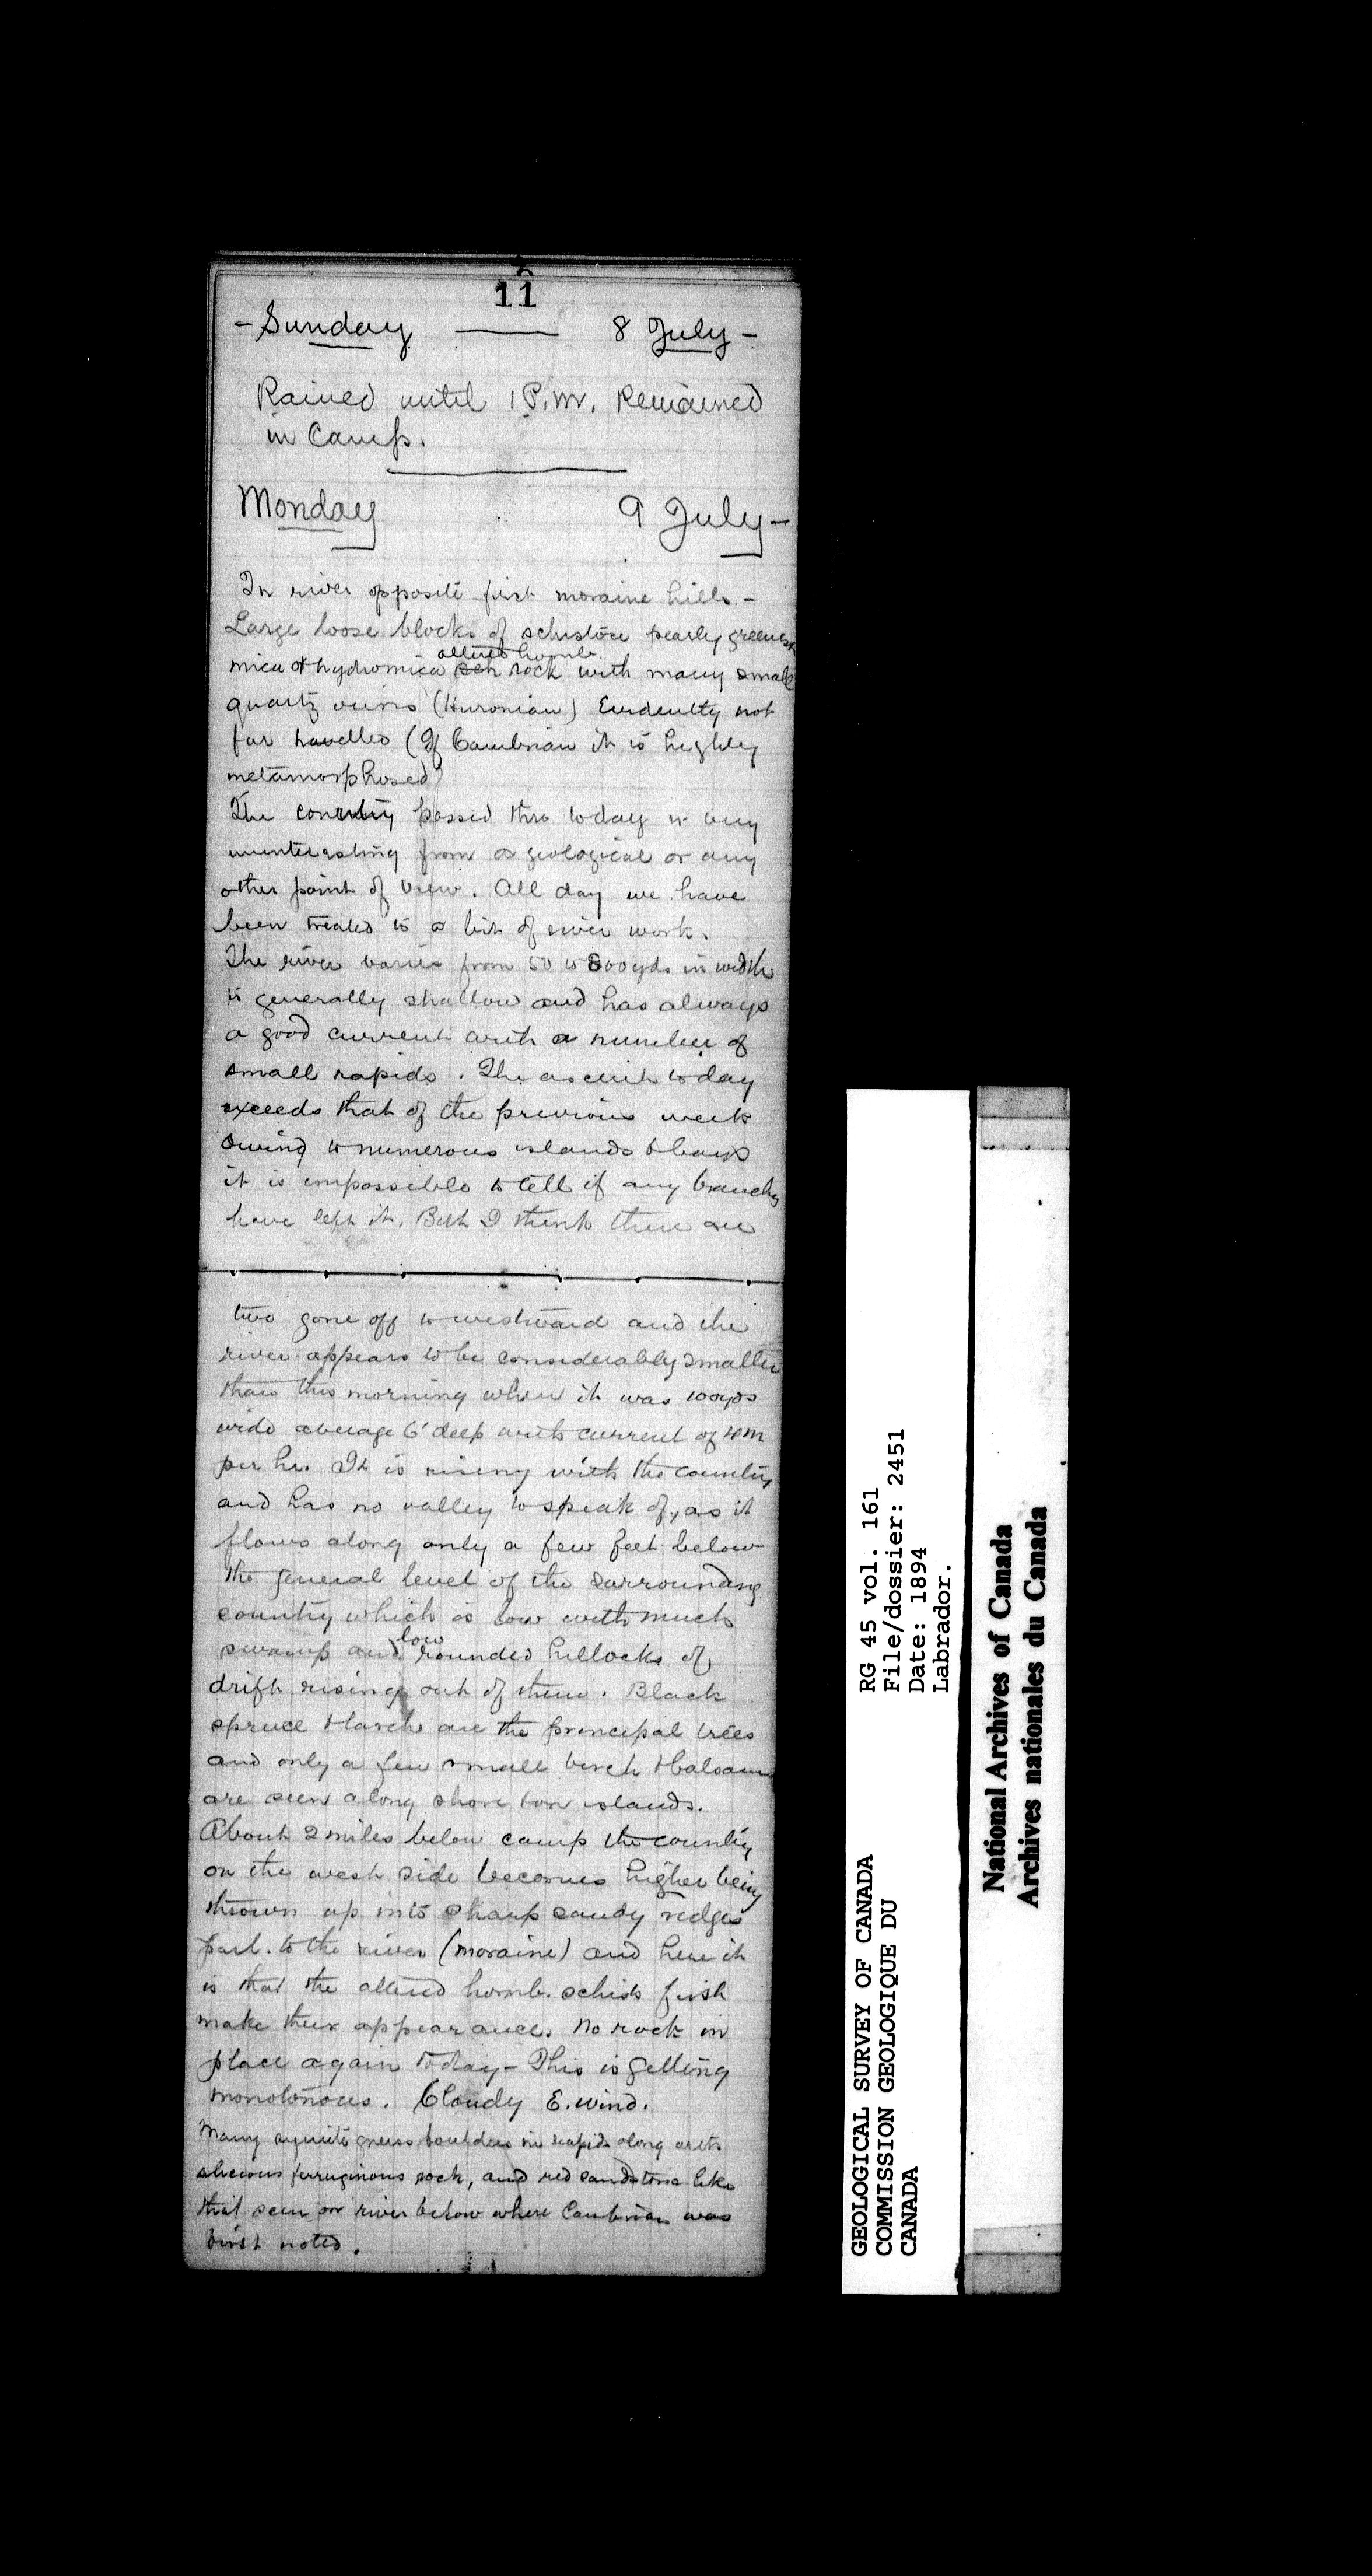 11
- Sunday — 8 July -
Rained until 1 P.M. Remained
in Camp.
Monday 9 July -
In river opposite first moraine hills -
Large loose blocks of schistose pearly greenish
altered hornb.
mica & hydromica sch rock with many small
quartz veins (Huronian) Evidently not
far travelled (If Cambrian it is highly
metamorphosed)
The country passed thro today is very
uninteresting from a geological or any
other point of view. All day we have
been treated to a bit of river work.
The river varies from 50 to 800 yds in width
is generally shallow and has always
a good current with a number of
small rapids. The ascent today
exceeds that of the previous week
Owing to numerous islands & bays
it is impossible to tell if any branches
have left it. But I think there are
two gone off to westward and the
river appears to be considerably smaller
than this morning when it was 100 yds
wide average 6' deep with current of 4 m
per hr. It is rising with the country
and has no valley to speak of, as it
flows along only a few feet below
the general level of the surrounding
country which is low with much
low
swamp and rounded hillocks of
drift rising out of them. Black
spruce & larch are the principal trees
and only a few small birch & balsam
are seen along shore & on islands.
About 2 miles below camp the country
on the west side becomes higher being
thrown up into sharp sandy ridges
parl. to the river (moraine) and here it
is that the altered hornb. schists first
make their appearance. No rock in
place again today - This is getting
monotonous. Cloudy E. wind.
Many syenite gneiss boulders in rapids along with
slicious ferruginous rock, and red sandstone like
that seen on river below where Cambrian was
first noted.
GEOLOGICAL SURVEY OF CANADA
COMMISSION GEOLOGIQUE DU
CANADA
RG 45 vol. 161
File/dossier: 2451
Date: 1894
Labrador.
National Archives of Canada
Archives nationales du Canada